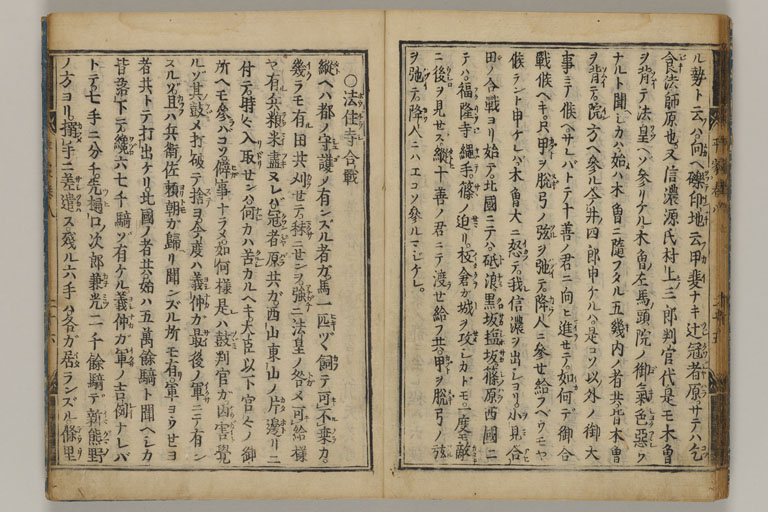 ル勢ト云ハ向ヘ礫印地云甲斐ナキ辻冠者原サテハ乞
食法師原也又信濃源氏村上ノ三郎判官代是モ木曽
ヲ背テ法皇ヘソ参リケル木曽左馬頭院ノ御氣色惡ク
ナルト聞シカハ始ハ木曽ニ隨フタル五幾内ノ者共皆木曽
ヲ背テ院方ヘ參ル今井四郎申ケルハ是コソ以外ノ御大
事ニテ候ヘサレバトテ十善ノ君ニ向ヒ進セテ如何テ御合
戰候ヘキ只甲ヲ脱弓ノ弦ヲ弛テ降人ニ參セ給フベウモヤ
候ラント申ケレハ木曽大ニ怒テ我信濃ヲ出シヨリ小見合
田ノ合戰ヨリ始テ北國ニテハ砥浪黒坂塩坂篠原西國ニ
テハ福隆寺縄手篠ノ迫リ板倉カ城ヲ攻シカトモ一度モ敵
ニ後ヲ見セス縦十善ノ君ニテ渡セ給フ共甲ヲ脱弓ノ弦
ヲ弛テ降人ニハエコソ參ルマジケレ。
○法住寺合戰
縦ヘハ都ノ守護ノ有ンズル者カ馬一匹ツヽ飼テ可不乗カ
幾ラモ有ル田共刈セテ秣ニセンヲ強ニ法皇ノ咎メ可給様
ヤ有兵粮米盡ヌレハ冠者原共カ西山東山ノ片邊リニ
付テ時々入取センハ何カハ苦カルヘキ大臣以下官々ノ御
所ヘモ参ハコソ僻事ナラメ如何様是ハ鼓判官カ凶害覺
ルソ其鼓メ打破テ捨ヨ今度ハ義仲カ最後ノ軍ニテ有ン
スルソ且ハ兵衛佐頼朝カ歸リ聞ンズル所モ有軍ヨウセヨ
者共トテ打出ケリ北國ノ者共始ハ五萬餘騎ト聞ヘシカ
皆落下テ纔六七千騎ソ有ケル義仲カ軍ノ吉例ナレバ
トテ七手ニ分テ先樋口ノ次郎兼光二千餘騎テ新熊野
ノ方ヨリ搦手ニ差遣ス殘ル六手ハ各カ居ランズル條里